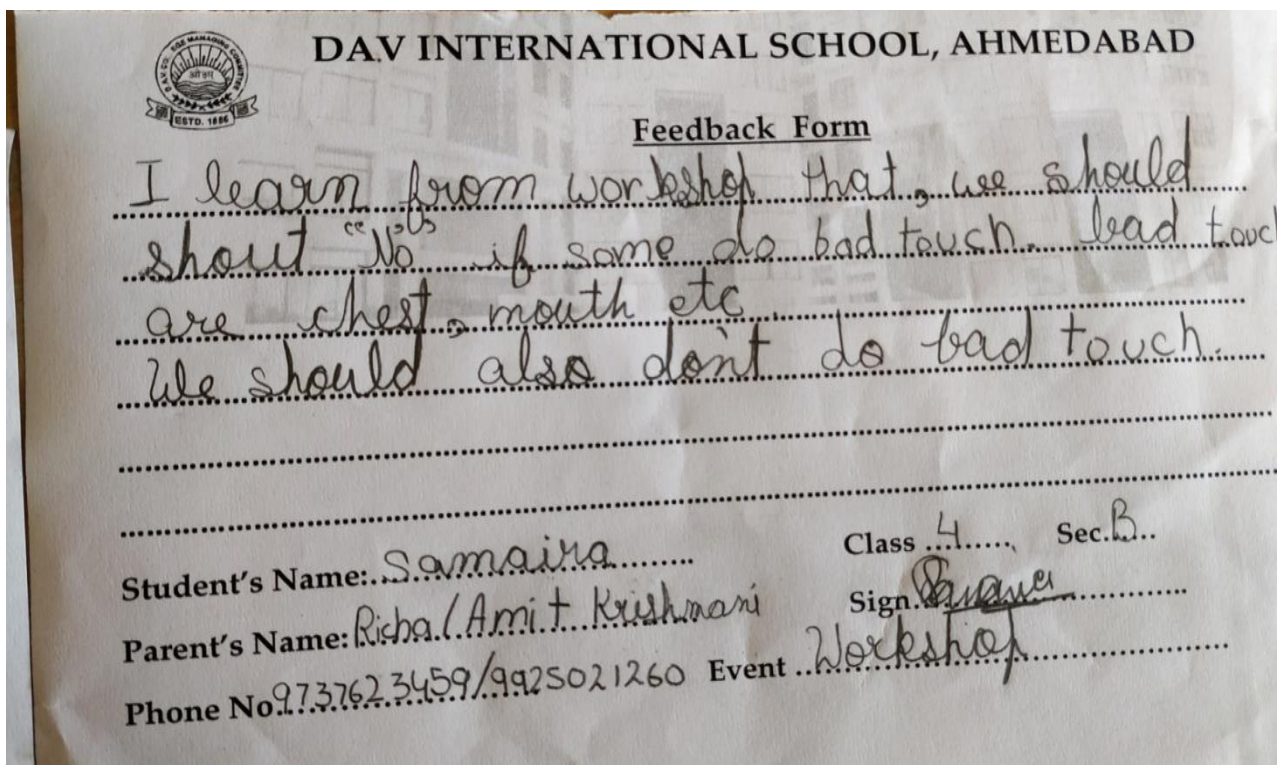 DAV INTERNATIONAL SCHOOL, AHMEDABAD
ESTD. 1886
Feedback Form
I learn from workshop that, we should
shout "No" if some do bad touch. bad touc
are chest, mouth etc.
We should also don't do bad touch.
Student's Name: Samaira Class 4 Sec. B
Parent's Name: Richa/Amit Krishnani Sign.
Phone No. 9737623459/9925021260 Event Workshop